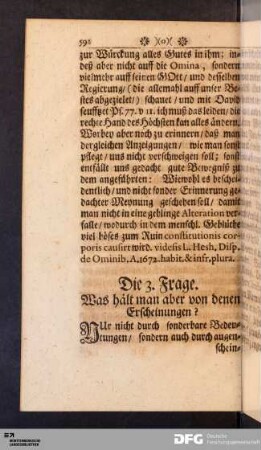 592 ❀ (o) ❀
zur Würckung alles Gutes in ihm: in-
deß aber nicht auff die Omina, sondern
vielmehr auff seinen GOtt, und desselben
Regierung/ (die allemahl auff unser Be-
stes abgezielet/) schauet/ und mit David
seufftzet Ps. 77. v 11. ich muß das leiden/ die
rechte Hand des Höchsten kan alles ändern.
Worbey aber noch zu erinnern/ daß man
dergleichen Anzeigungen/ wie man sonst
pflege/ uns nicht verschweigen soll; sonst
entfällt uns gedacht gute Bewegniß zu
dem angeführten: Wiewohl es bescheei-
dentlich/ und nicht sonder Erinnerung ge-
dachter Meynung geschehen soll/ damit
man nicht in eine geblinge Alteration ver-
falle/ wodurch in dem menschl. Geblüthe
viel böses zum Ruin constitutionis cor-
poris causirt wird. videsis L. Hesh, Disp.
de Ominib. A. 1672. habit. & infr. plura.
Die 3. Frage.
Was hält man aber von denen
Erscheinungen?
NUr nicht durch sonderbare Bedeu-
tungen/ sondern auch durch augen-
schein-
DFG Deutsche
Forschungsgemeinschaft